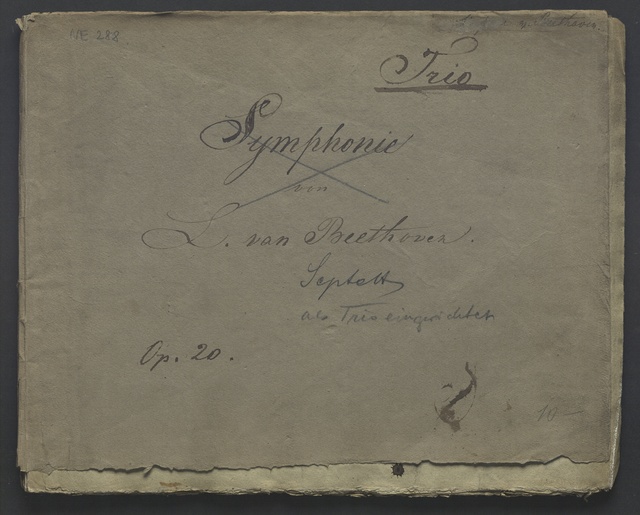 NE 288
Trio
Symphonie
von
L. van Beethoven.
Septett
als Trio eingerichtet
Op. 20.
10—